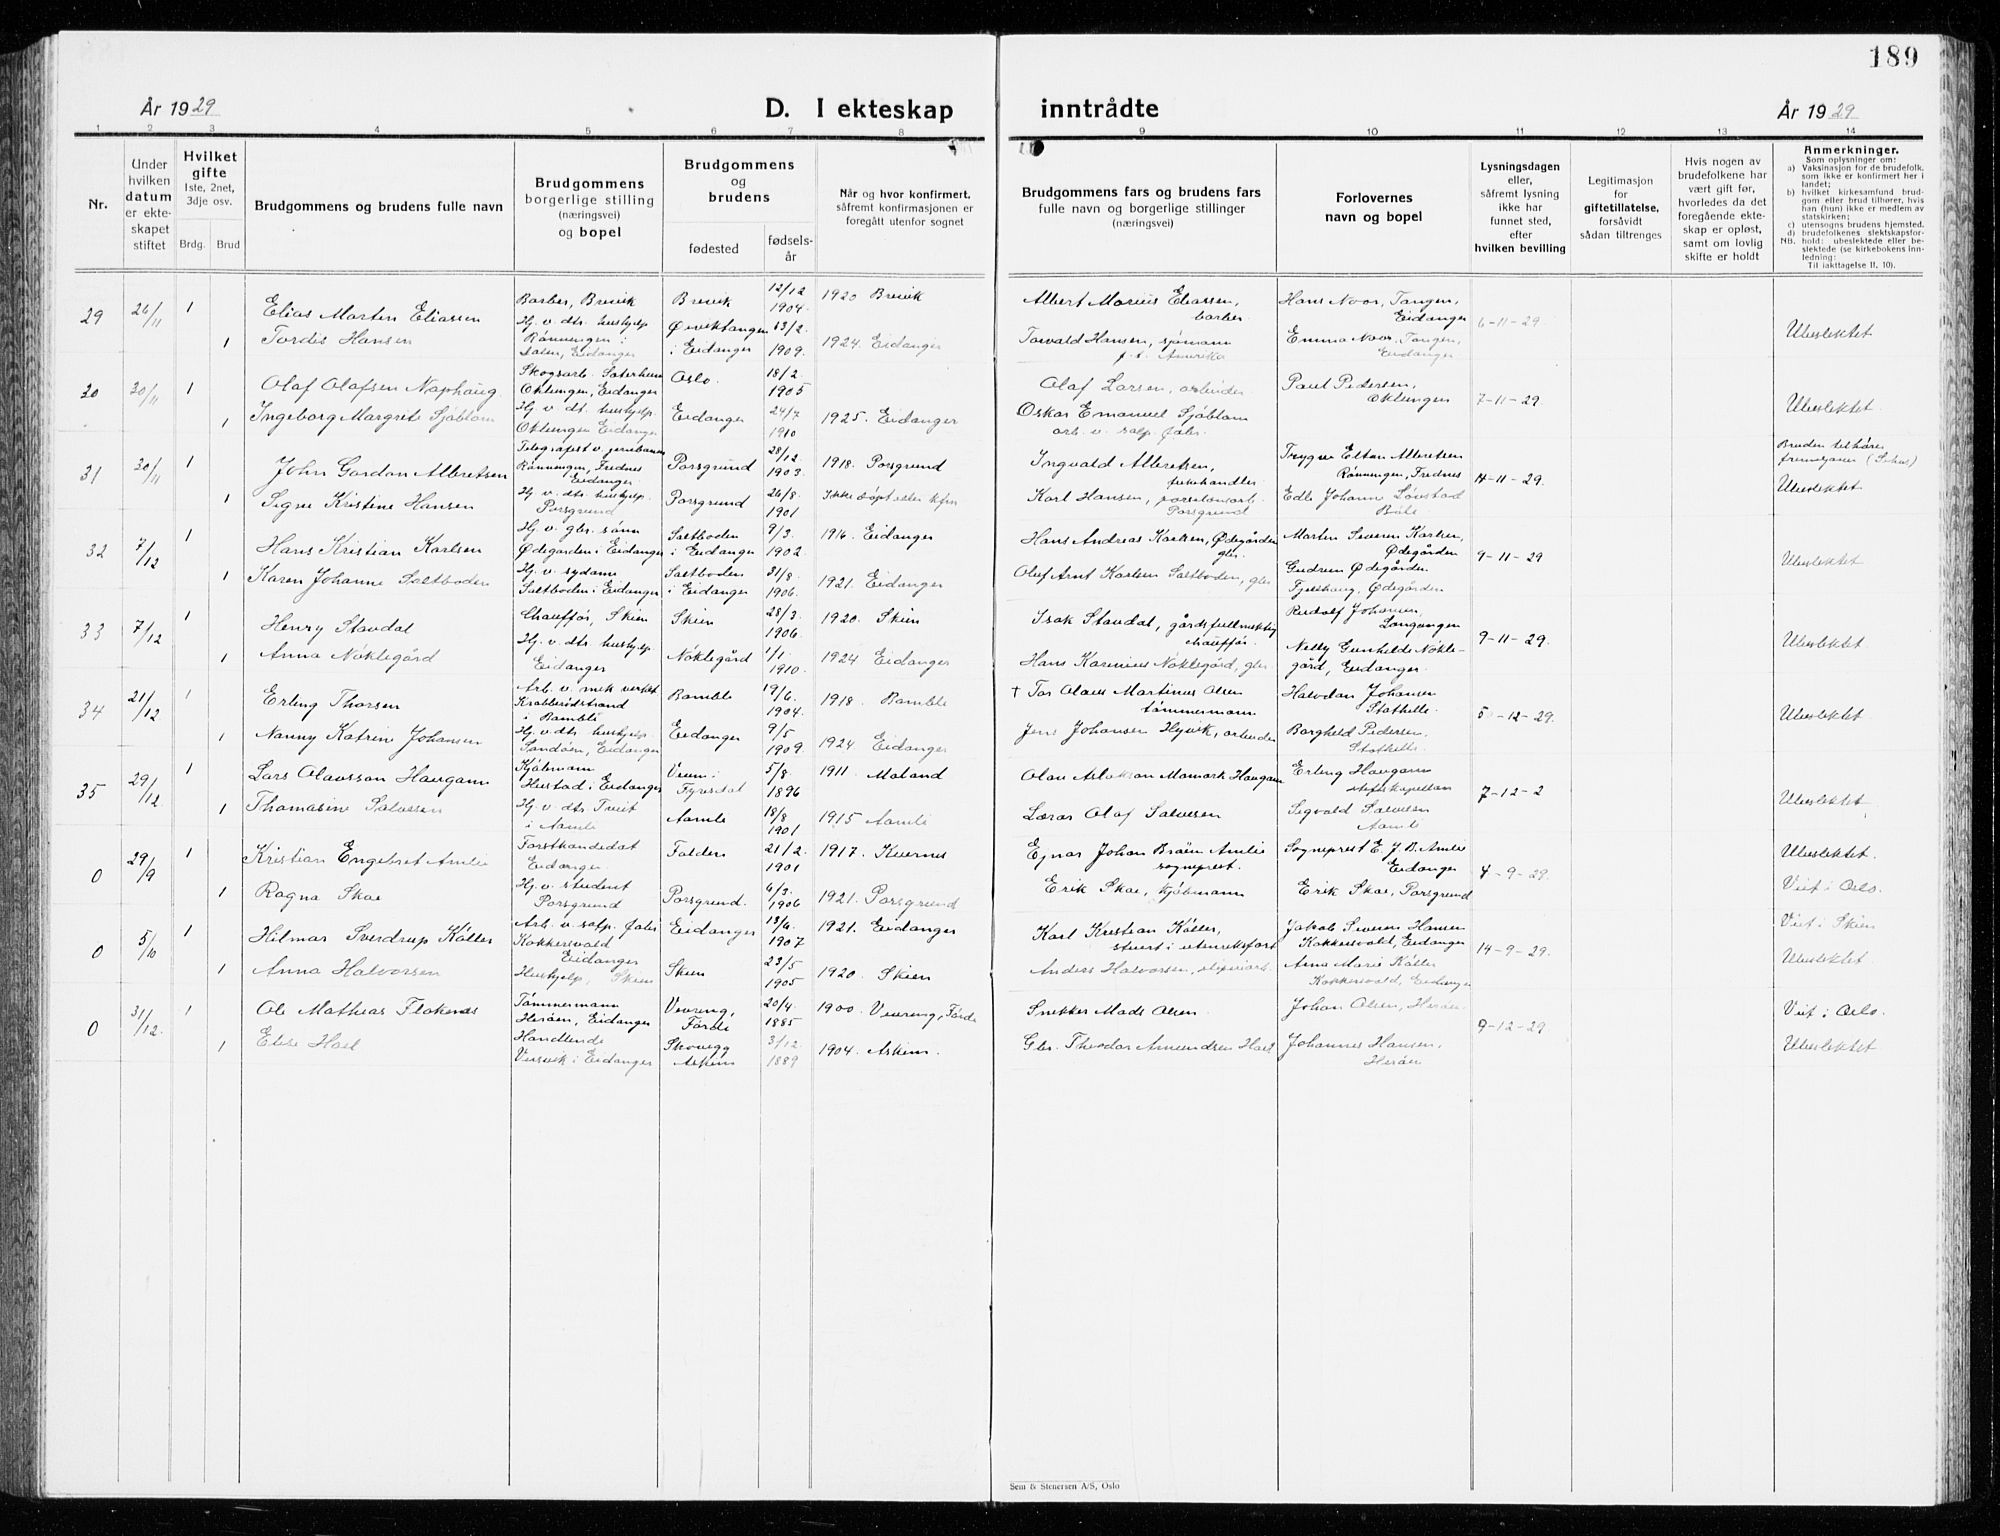 189
År 1929
D. I ekteskap
inntrådte
År 1929
1 2 3 4 5 6 7 8 9 10 11 12 13 14
Nr.
Under
hvilken
datum
er ekte-
skapet
stiftet
Hvilket
gifte
1ste, 2net,
3dje osv.
Brdg. Brud
Brudgommens og brudens fulle navn
Brudgommens
borgerlige stilling
(næringsvei)
og bopel
Brudgommens
og
brudens
fødested
fødsels-
år
Når og hvor konfirmert,
såfremt konfirmasjonen er
foregått utenfor sognet
Brudgommens fars og brudens fars
fulle navn og borgerlige stillinger
(næringsvei)
Forlovernes
navn og bopel
Lysningsdagen
eller,
såfremt lysning
ikke har
funnet sted,
efter
hvilken bevilling
Legitimasjon
for
giftetillatelse,
forsåvidt
sådan tiltrenges
Hvis nogen av
brudefolkene har
vært gift før,
hvorledes da det
foregående ekte-
skap er opløst,
samt om lovlig
skifte er holdt
Anmerkninger.
Som oplysninger om:
a) Vaksinasjon for de brudefolk,
som ikke er konfirmert her i
landet;
b) hvilket kirkesamfund brud-
gom eller brud tilhører, hvis
han (hun) ikke er medlem av
statskirken;
c) utensogns brudens hjemsted.
d) brudefolkenes slektskapsfor-
NB. hold: ubeslektede eller be-
slektede (se kirkebokens inn-
ledning:
Til iakttagelse II, 10).
29 26/11 1 Elias Marten Eliassen Barber, Brevik Brevik 12/12 1904 1920 Brevik Albert Marius Eliassen, barber Hans Noor, Tangen, Eidanger 6-11-29
1 Tordis Hansen Hj. v. dts. hushjelp Rønningen i Dalen, Eidanger Øiviktangen i Eidanger 13/2 1909. 1924. Eidanger Torvald Hansen, sjømann f.t. Amerika Emma Noor, Tangen, Eidanger Ubeslektet
30 30/11 1 Olaf Olafsen Naphaug Skogsarb. Oklungen, Eidanger Oslo. 18/2 1905 Olaf Larsen, arbeider Paul Pedersen, Oklungen 7-11-29.
1 Ingeborg Margrit Sjøblom Hj. v. dt. hushjelp. Oklungen Eidanger Eidanger 24/7 1910 1925. Eidanger Oskar Emanuel Sjøblom arb. v. salp. fabr. Ubeslektet
31 30/11 1 John Gordon Albretsen Telegrafist v. jernbanen Rønningen, Frednes Eidanger Porsgrund 28/12 1903. 1918. Porsgrund Ingvald Albretsen, fiskehandler Trygve Elton Albretsen Rønningen, Frednes 14-11-29. Bruden tilhører frimenigheten (Sihas)
1 Signe Kristine Hansen Hj. v. dts. hushjelp. Porsgrund Porsgrund 26/8 1901 Ikke døpt eller kfm Karl Hansen, porselensarb. Porsgrund Edle Johanne Lønstad Bøle Ubeslektet
32 7/12 1 Hans Kristian Karlsen Hj. v. gbr. sønn Ødegården i Eidanger Saltboden i Eidanger 9/3. 1902. 1916. Eidanger Hans Andreas Karlsen, Ødegården gbr. Marten Severin Karlsen, Ødegården 9-11-29
1 Karen Johanne Saltboden Hj. v. sydame Saltboden i Eidanger Saltboden i Eidanger 31/8. 1906. 1921. Eidanger Oluf Arnt Karlsen Saltboden, gbr Gudrun Ødegården Fjelskaug, Ødegården Ubeslektet
33 7/12 1 Henry Stavdal Chauffør, Skien Skien 28/3. 1906. 1920. Skien Isak Stavdal, gårdsfullmektig chauffør. Rudolf Johansen, Langangen 9-11-29.
1 Anna Nøklegård Hj. v. dts hushjelp Eidanger Nøklegård 1/1. 1910. 1924 Eidanger Hans Karenius Nøklegård, gbr Nelly Gunhilde Nøkle-gård, Eidanger. Ubeslektet
34 21/12 1 Erling Thorsen Arb. v. mek verkst Krabberødstrand i Bamble Bamble 19/6. 1904. 1918. Bamble † Tor Olaus Martinus Olsen tømmermann Halvdan Johansen Stathelle 5-12-29.
1 Nanny Katrine Johansen Hj. v. dts hushjelp Sandøen, Eidanger Eidanger 9/5 1909. 1924. Eidanger Jens Johansen Hyvik, arbeider Borghild Pedersen, Stathelle. Ubeslektet
35 29/12 1 Lars Olavsson Haugann Kjøbmann Herstad i Eidanger Veum i Fyresdal 5/8 1896 1911 - Moland Olav Aslakson Momark Haugann Erling Haugann stiftskapellan 7-12-2
1 Thomasine Salvesen Hj. v. dts Tveit i Aamli Aamli 18/8 1901 1915 Aamli Lærer Olaf Salvesen Sigvald Salvesen Aamli Ubeslektet
0 29/9 1 Kristian Engebret Amlie Forstkandidat Eidanger Folden 21/2. 1901 1917. Kvernes Ejnar Johan Braën Amlie sogneprest. Sogneprest E. J. B. Amlie Eidanger 4-9-29. Ubeslektet.
1 Ragna Skae Hj. v. student Porsgrund Porsgrund. 6/3. 1906 1921. Porsgrund Erik Skae, kjøbmann Erik Skae, Porsgrund Viet i Oslo.
0 5/10 1 Hilmar Sverdrup Kåller Arb. v. salp. fabr Kokkersvald Eidanger Eidanger 13/6. 1907 1921. Eidanger Karl Kristian Kåller, stuert i utenriksfart Jakob Severin Hansen Kokkersvold, Eidanger 14-9-29. Viet i Skien
1 Anna Halvorsen Hushjelp, Skien Skien 23/5 1905 1920. Skien Anders Halvorsen, sliperiarb. Anna Marie Kåller Kokkersvold, Eidanger Ubeslektet.
0 31/12. 1 Ole Mathias Flokenes Tømmermann Herøen, Eidanger Vevring, Førde 20/4. 1885 1900 Vevring, Førde Snekker Mads Olsen Johan Olsen, Herøen 9-12-29 Viet i Oslo.
1 Elise Hoel Handlende Versvik i Eidanger Skovegg Askim 3/12 1889 1904. Askim. Gbr. Theodor Amundsen Hoel Johannes Hansen, Herøen Ubeslektet
Sem & Stenersen A/S, Oslo